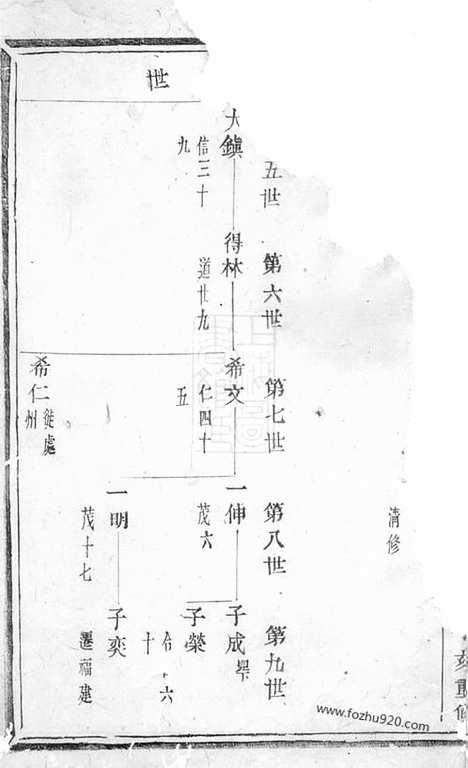 重修
清修
五世
第六世
第七世
第八世
第九世
大鎮
信三十
九
得林
道廿九
希文
仁四十
五
一伸
茂六
子成
子榮
十
六
世
一明
茂十七
子奕
遷福建
希仁
徙處
州
www.fozhu920.com